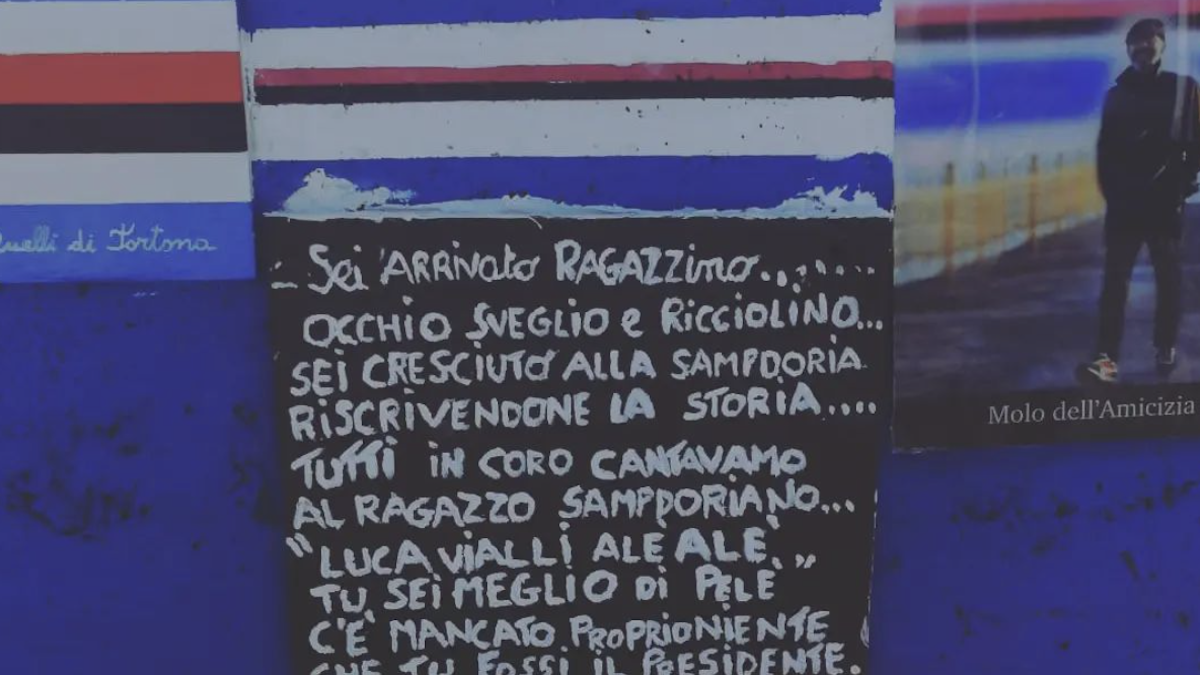 Quelli di Tortona
- Sei ARRivato RAGAZZino........
OCCHIO SVEGLIO e RiCCiOLiNO...
SEi CRESCIUTO ALLA SAMPDORIA.
RiSCRiVENDONE LA STORIA....
TUTTi iN CORO CANTAVAMO
AL RAGAZZO SAMPDORiANO...
"LUCA ViALLi ALÈ ALÈ."
TU SEi MEGLIO Di PELÈ
C'È MANCATO PROPRiONiENTE
CHE TU FOSSi iL PRESiDENTE.
Molo dell'Amicizia